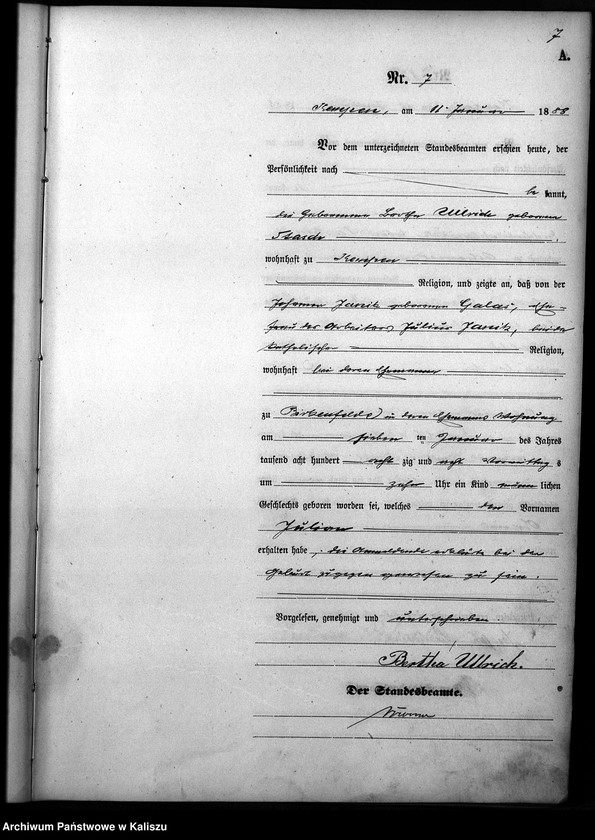 7
A.
Nr. 7
Kempen, am 11 Januar 1888
Vor dem unterzeichneten Standesbeamten erschien heute, der
Persönlichkeit nach
be kannt,
die Hebamme Bertha Ullrich geborene
wohnhaft zu Kempen
Religion, und zeigte an, daß von der
Johanna Janik geborenen Galas, Ehe-
frau des Arbeiters Julius Janik, beide
katholischer Religion,
wohnhaft bei deren Ehemann
zu Birkenfelde in deren Ehemanns Wohnung
am sieben ten Januar des Jahres
tausend acht hundert acht zig und acht Vormittag s
um zehn Uhr ein Kind männ lichen
Geschlechts geboren worden sei, welches den Vornamen
Julian
erhalten habe, die Anmeldende erklärte bei der
Geburt zugegen gewesen zu sein.
Vorgelesen, genehmigt und unterschrieben
Bertha Ullrich.
Der Standesbeamte.
Archiwum Państwowe w Kaliszu